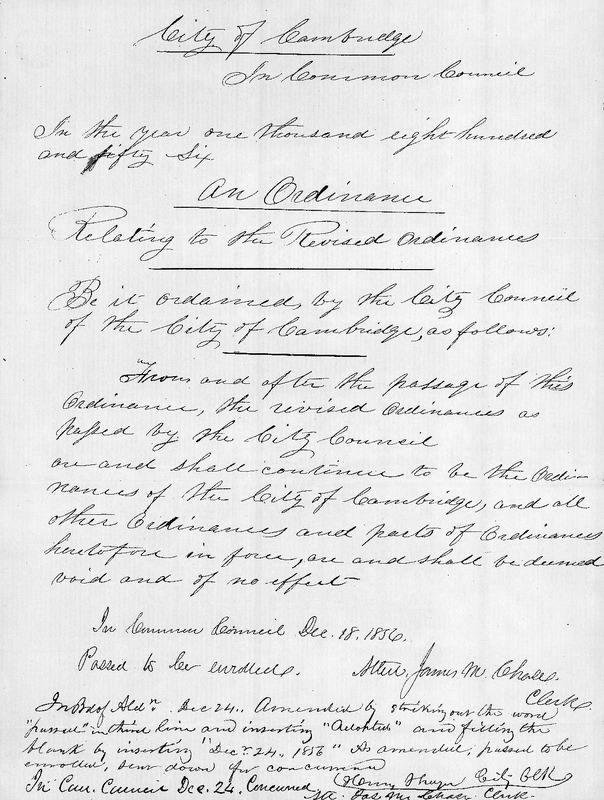 City of Cambridge
In Common Council
In the year one thousand eight hundred
and fifty six
An Ordinance
Relating to the Revised Ordinances
Be it ordained, by the City Council
of the City of Cambridge, as follows:
From and after the passage of this
Ordinance, the revised Ordinances as
passed by the City Council
are and shall continue to be the Ordi-
nances of the City of Cambridge, and all
other Ordinances and parts of Ordinances
heretofore in force, are and shall be deemed
void and of no effect
In Common Council Dec. 18. 1856.
Passed to be enrolled. Attest, James M. Chase.
Clerk.
In Bd of Aldn. Dec 24. Amended by striking out the word
"passed" in third line and inserting "Adopted" and filling the
blank by inserting "Decr. 24. 1856" As amended, passed to be
enrolled, sent down for concurrence
Henry Thayer City Clk
In Com. Council Dec. 24. Concurred
Att. Jas. M. Chase. Clerk.